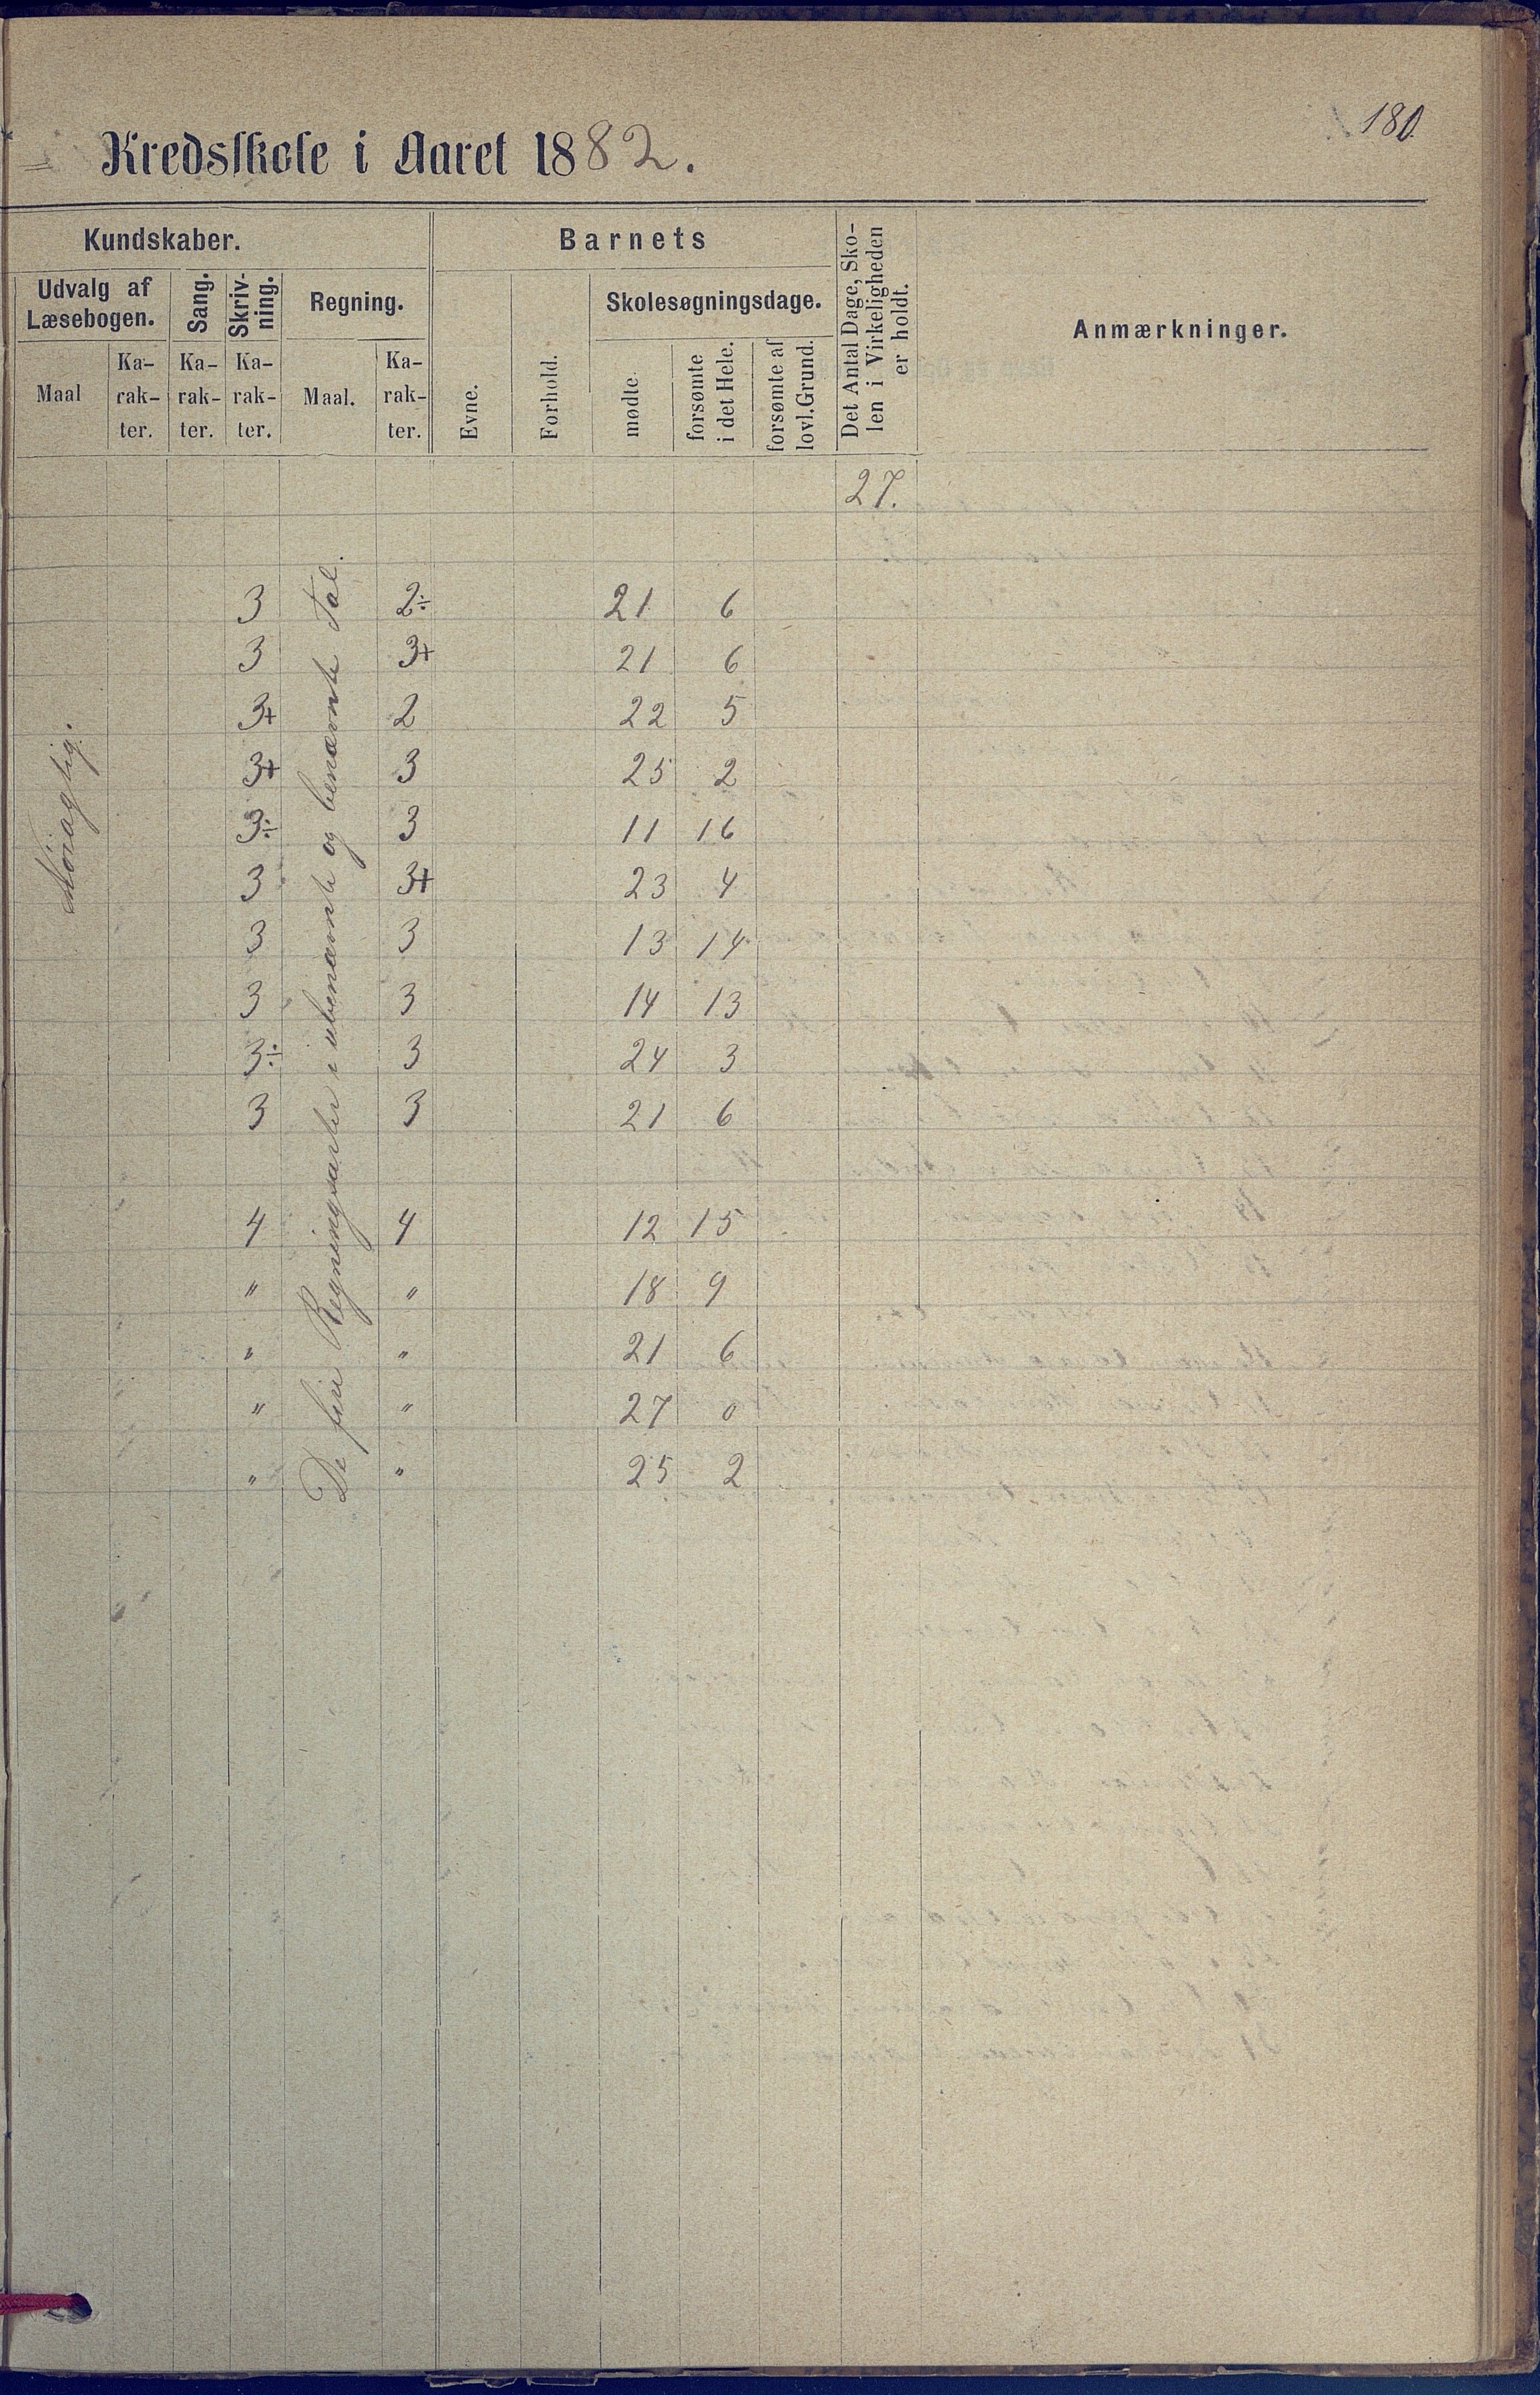 180.
Kredsskole i Aaret 1882.
Kundskaber.
Barnets
Det Antal Dage, Sko-
len i Virkeligheden
er holdt.
Anmærkninger.
Udvalg af
Læsebogen.
Sang.
Skriv-
ning.
Regning.
Evne.
Forhold.
Skolesøgningsdage.
Maal
Ka-
rak-
ter.
Ka-
rak-
ter.
Ka-
rak-
ter.
Maal.
Ka-
rak-
ter.
mødte.
forsømte
i det Hele.
forsømte af
lovl. Grund.
27.
De fire Regningsarter i ubenævnte og benævnte Tal.
3 2÷ 21 6
3 3+ 21 6
3+ 2 22 5
3+ 3 25 2
3÷ 3 11 16
3 3+ 23 4
3 3 13 14
3 3 14 13
3÷ 3 24 3
3 3 21 6
4 4 12 15
" " 18 9
" " 21 6
" " 27 0
" " 25 2